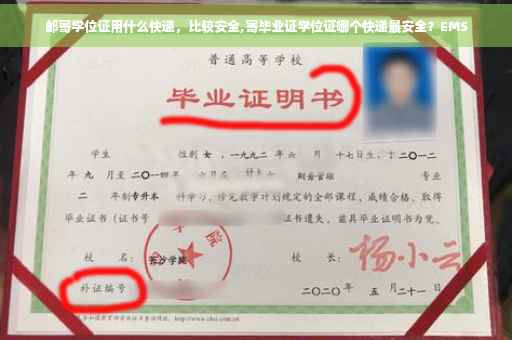 邮寄学位证用什么快递，比较安全,寄毕业证学位证哪个快递最安全？EMS
普通高等学校
毕业证明书
学生 性别 女，一九九二年 六 月 十七日生，于二〇一二
年 九 月至二〇一四年 六月在 财务管理 专业
二 年制专升本 科学习，修完教学计划规定的全部课程，成绩合格，取得
毕业证书（证书号 证书遗失，兹具毕业证明书为凭。
校 名： 长沙学院 校 长： 杨小云
补证编号
二〇二〇年 五 月二十一日
http://www.chsi.com.cn